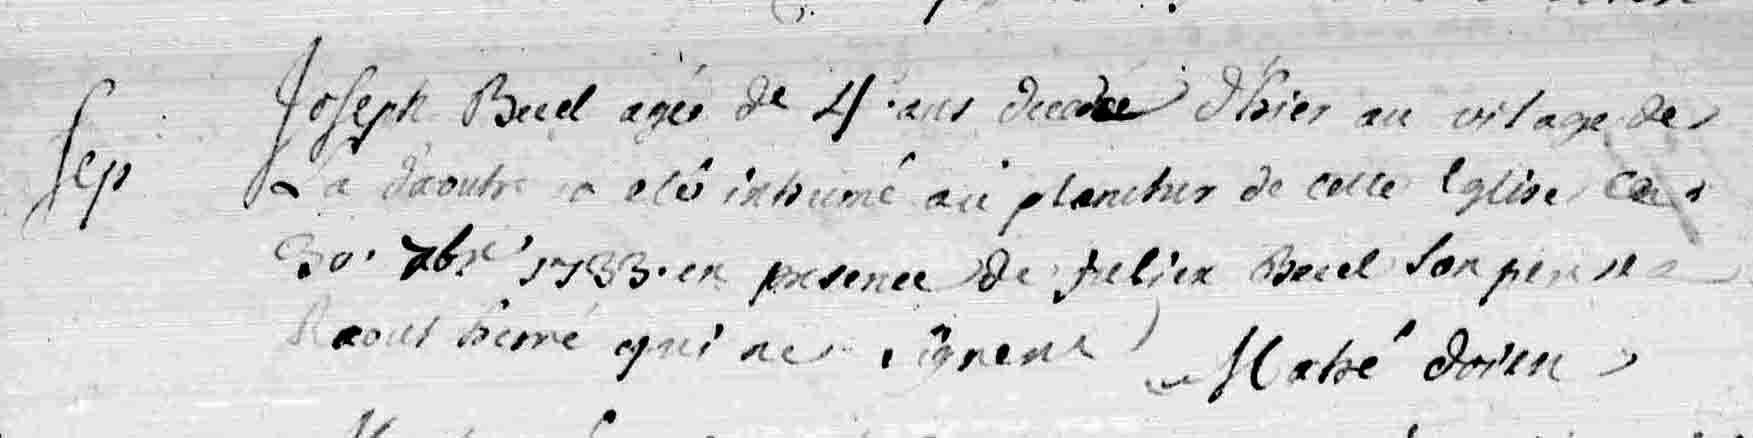 Sep
Joseph Burel agé de 4 ans decedé d'hier au vilage de
La daoutre a eté inhumé au plancher de cette Eglise ce
30. 7bre 1733. en presence de Julien Burel son pere
Raoul hemé qui ne signent Mahé doien